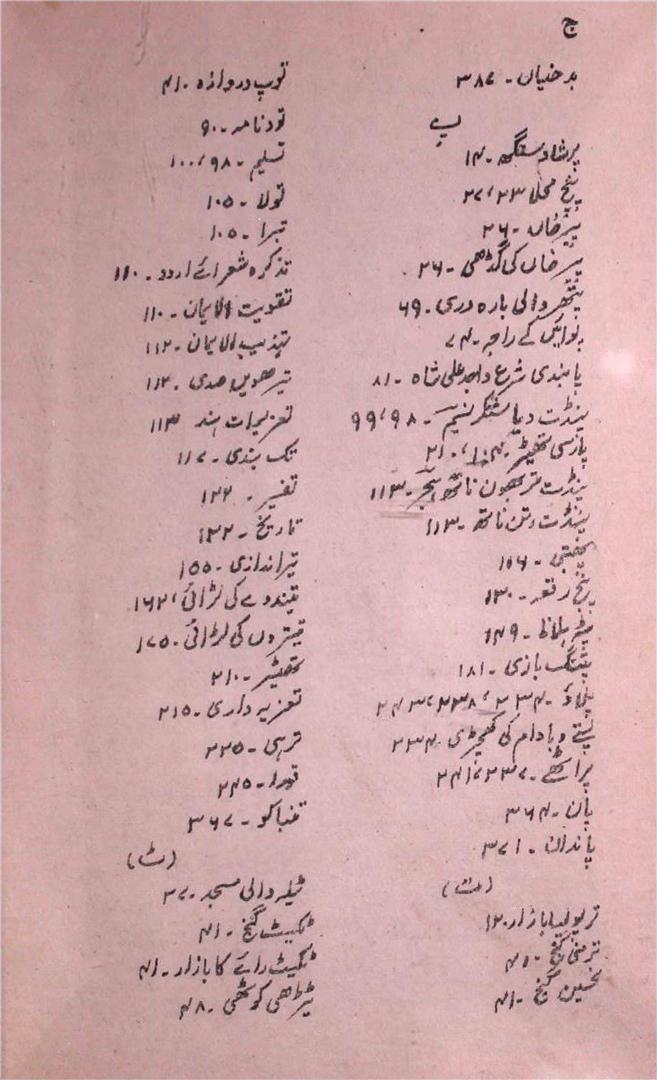 ج
بدخنیاں - ۳۸۷
پ
پرشاد سنگھ - ۱۴
پنج محلا ۲۳، ۲۷
پیر خاں - ۲۶
پیر خاں کی گڈھی - ۲۶
پتھر والی بارہ دری - ۶۹
کے راجہ - ۷۴
پابندی شرع واجد علی شاہ - ۸۱
پنڈت دیا شنکر نسیم - ۹۸، ۹۹
پارسی تھیٹر - ۲۱۰
پنڈت تربھون ناتھ ہجر - ۱۱۳
پنڈت رتن ناتھ - ۱۱۳
پھبتی - ۱۶۶
پنج رقعہ - ۱۳۰
پٹہ ہلانا - ۱۴۹
پتنگ بازی - ۱۸۱
پلاؤ - ۲۳۴، ۲۳۸، ۲۴۳
پستے و بادام کی کھچڑی - ۲۳۴
پراٹھے - ۲۳۷، ۲۴۱
پان - ۳۶۴
پاندان - ۳۷۱
(ت)
ترپولیا بازار - ۱۲
ترمنی گنج - ۴۱
تحسین گنج - ۴۱
توپ دروازہ - ۴۱
تودنامہ - ۹۰
تسلیم - ۹۸، ۱۰۰
تولا - ۱۰۵
تبرا - ۱۰۵
تذکرہ شعرائے اردو - ۱۱۰
تقویت الایمان - ۱۱۰
تہذیب الایمان - ۱۱۲
تیرھویں صدی - ۱۱۲
تعزیرات ہند ۱۱۳
تک بندی - ۱۱۷
تفسیر - ۱۲۲
تاریخ - ۱۲۲
تیراندازی - ۱۵۵
تیندوے کی لڑائی، ۱۶۲
تیتروں کی لڑائی - ۱۷۵
تھیٹر - ۲۱۰
تعزیہ داری - ۲۱۵
ترہی - ۲۲۵
تورا - ۲۴۵
تمباکو - ۳۶۷
(ٹ)
ٹیلہ والی مسجد - ۳۷
ٹکیٹ گنج - ۴۱
ٹکیٹ رائے کا بازار - ۴۱
ٹیڑھی کوٹھی - ۴۸